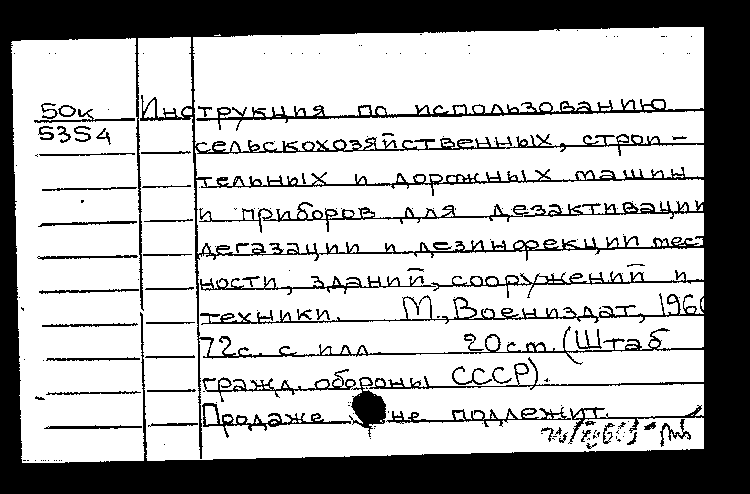 50к Инструкция по использованию
5354 сельскохозяйственных, строи-
тельных и дорожных машин
и приборов для дезактивации
дегазации и дезинфекции мест
ности, зданий, сооружений и
техники. М., Воениздат, 196
72с. с илл. 20см. (Штаб
гражд. обороны СССР).
Продаже не подлежит.